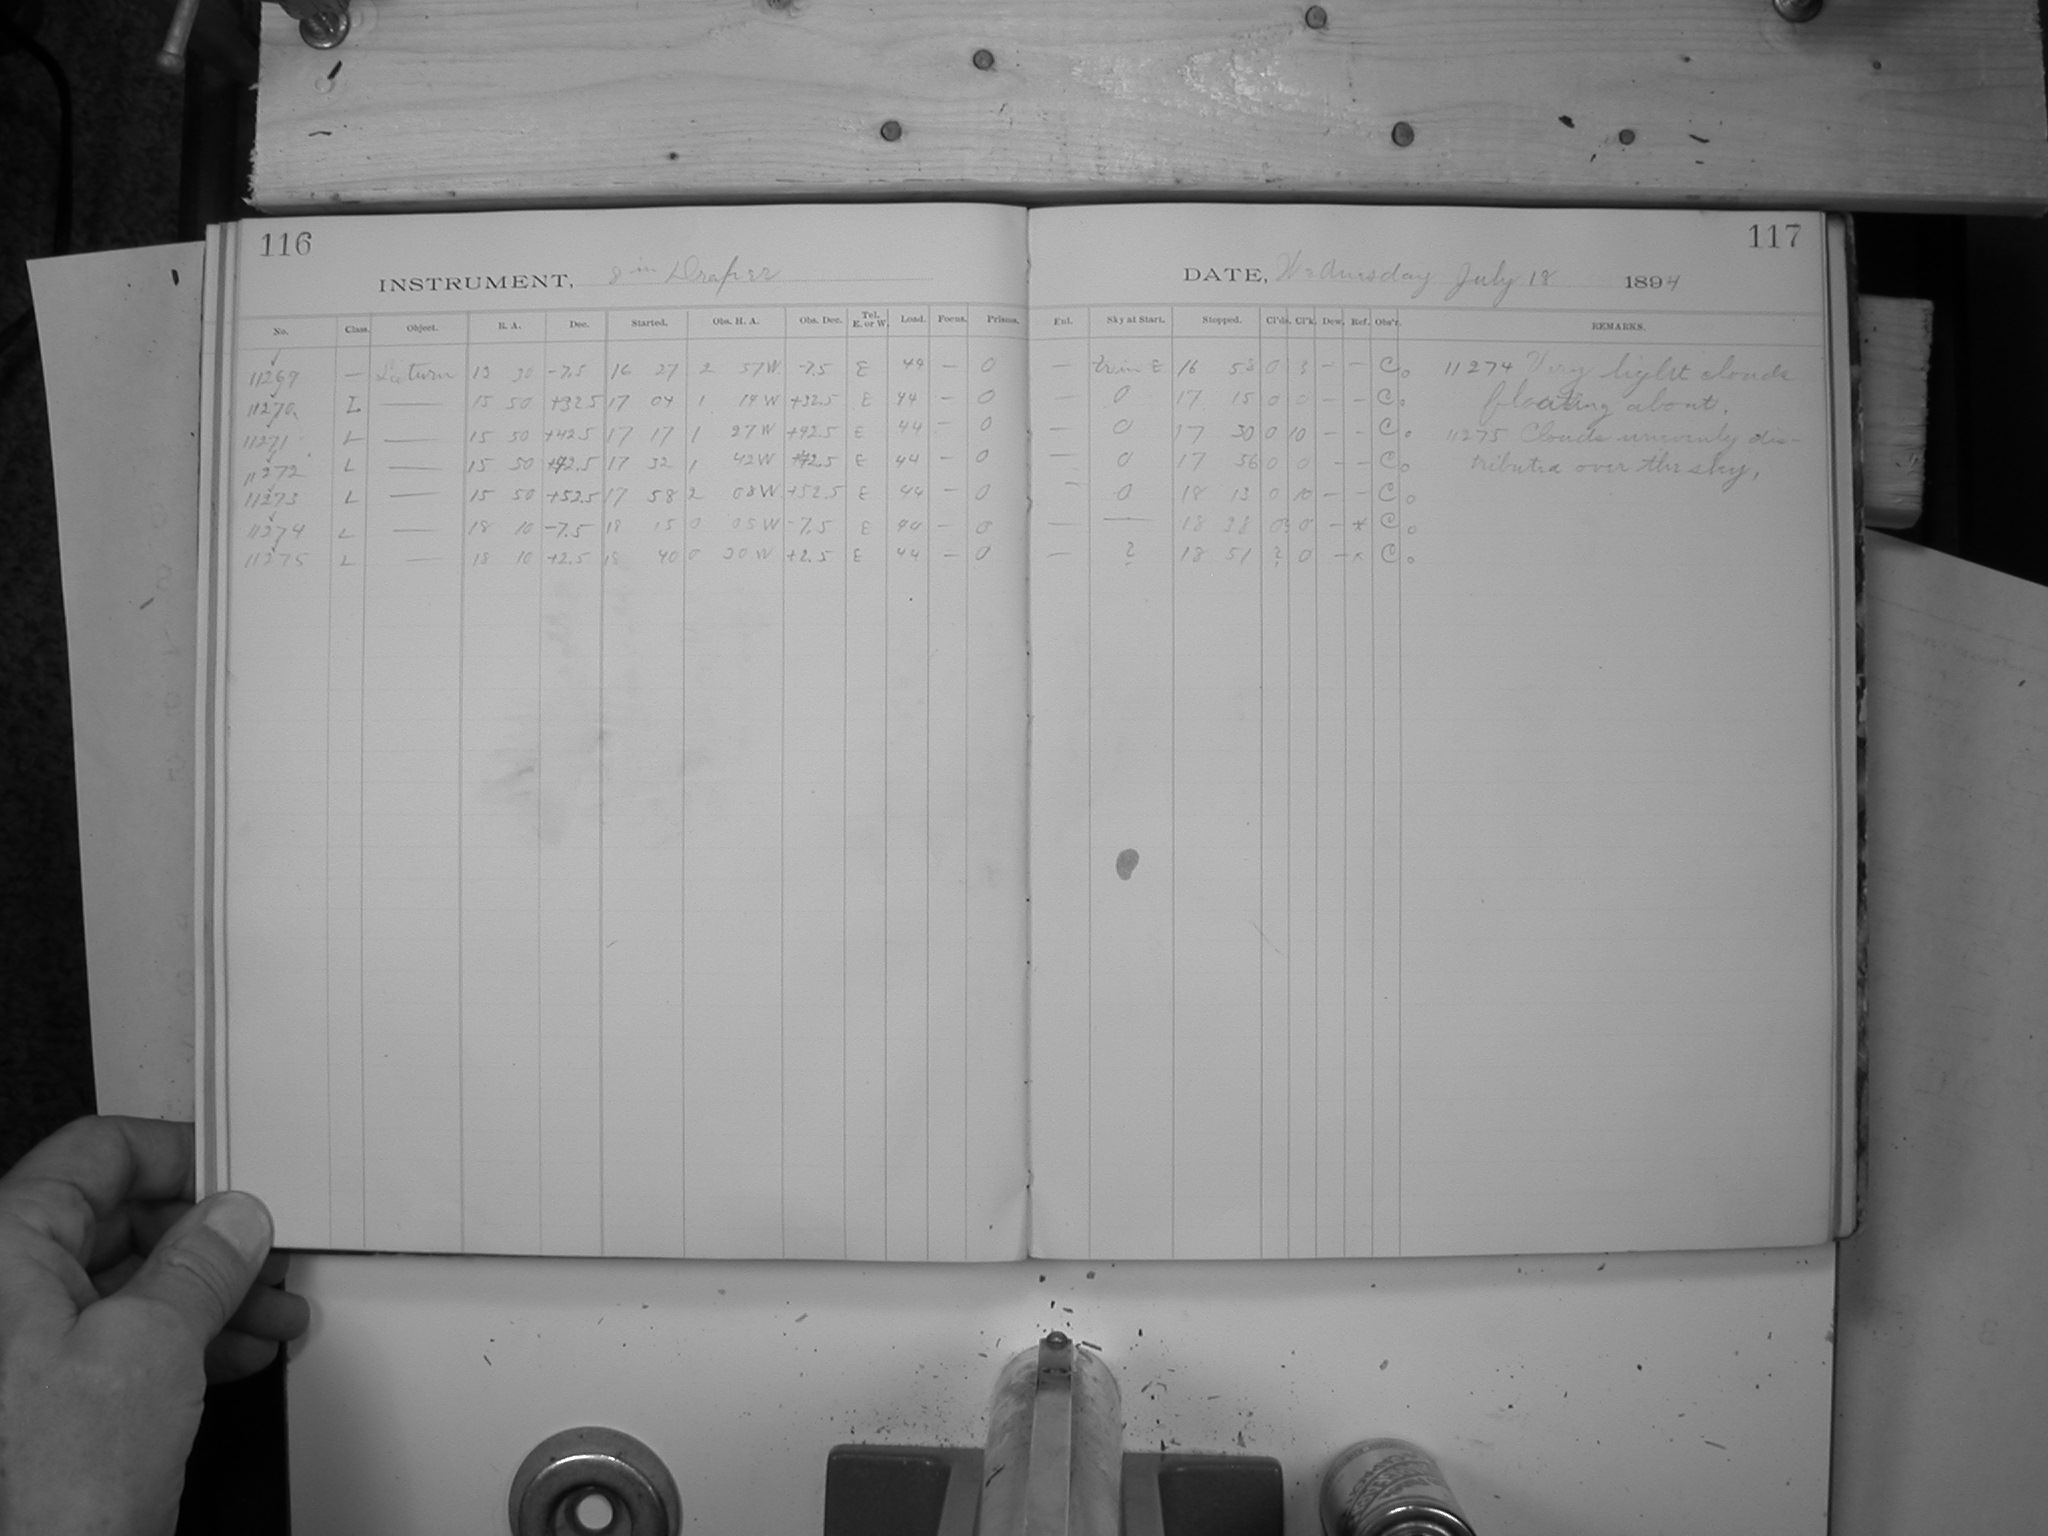 116
INSTRUMENT, 8 in Draper
No. Class. Object. R. A. Dec. Started. Obs. H. A. Obs. Dec. Tel. E. or W. Load. Focus. Prisms.
11269 — Saturn 13 30 -7.5 16 27 2 57W -7.5 E 44 — 0
11270 L — 15 50 +32.5 17 04 1 14W +32.5 E 44 — 0
11271 L — 15 50 +42.5 17 17 1 27W +42.5 E 44 — 0
11272 L — 15 50 +42.5 17 32 1 42W +42.5 E 44 — 0
11273 L — 15 50 +52.5 17 58 2 08W +52.5 E 44 — 0
11274 L — 18 10 -7.5 18 15 0 05W -7.5 E 44 — 0
11275 L — 18 10 +2.5 18 40 0 30W +2.5 E 44 — 0
117
DATE, Wednesday July 18 1894
Ext. Sky at Start. Stopped. Cl'ds. Cl'k. Dew. Ref. Obs'r. REMARKS.
— E 16 58 0 3 — — Co 11274 Very light clouds
— 0 17 15 0 0 — — Co floating about.
— 0 17 30 0 10 — — Co 11275 Clouds unevenly dis-
— 0 17 56 0 0 — — Co tributed over the sky.
— 0 18 13 0 10 — — Co
— — 18 38 0 — * Co
— ? 18 51 ? 0 — Co